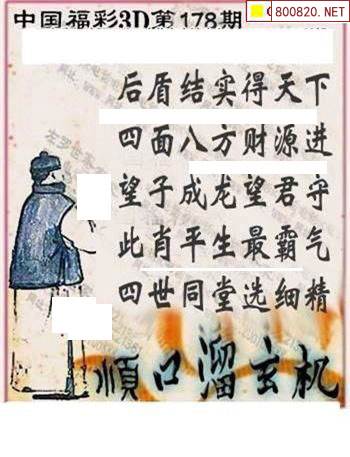 中国福彩3D第178期
800820.NET
后盾结实得天下
四面八方财源进
望子成龙望君守
此肖平生最霸气
四世同堂选细精
顺口溜玄机